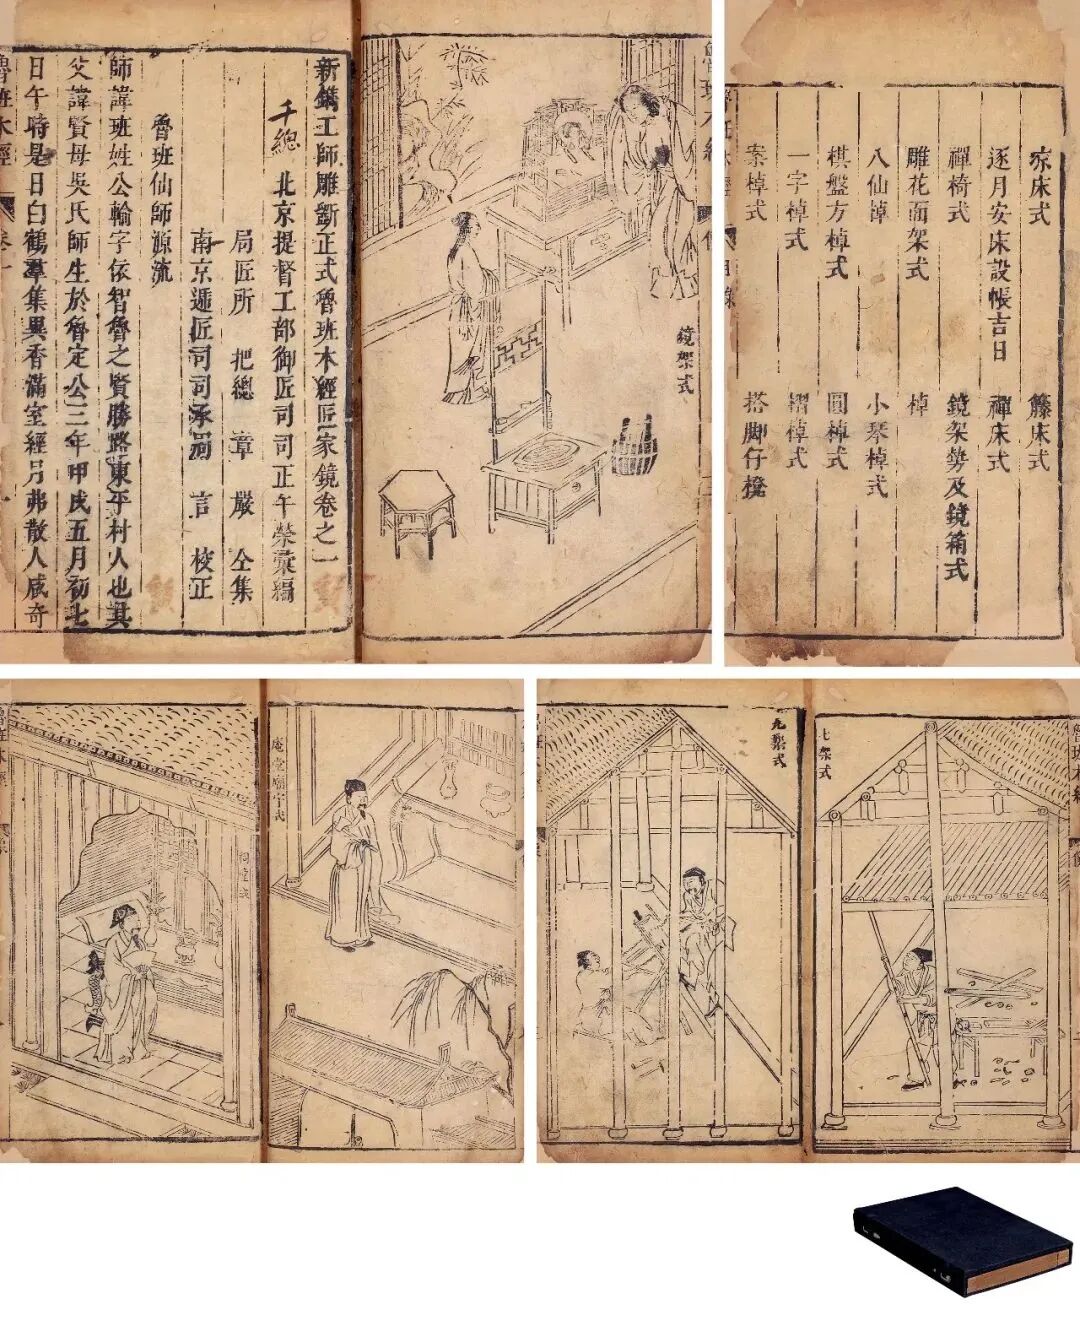 新鐫工師雕斲正式魯班木經匠家鏡卷之一
千總
北京提督工部御匠司司正午榮彙編
局匠所 把總 章 嚴 全集
南京遞匠司司承周 言 校正
魯班仙師源流
師諱班姓公輸字依智魯之賢勝路東平村人也其
父諱賢母吳氏師生於魯定公三年甲戌五月初七
日午時是日白鶴羣集異香滿室經月弗散人咸奇
魯班木經
卷一
鏡架式
涼床式 籐床式
逐月安床設帳吉日 禪床式
禪椅式 鏡架勢及鏡箱式
雕花面架式 棹
八仙棹 小琴棹式
棋盤方棹式 圓棹式
一字棹式 摺棹式
案棹式 搭脚仔櫈
庵堂廟宇式
祠堂式
九架式
七架式